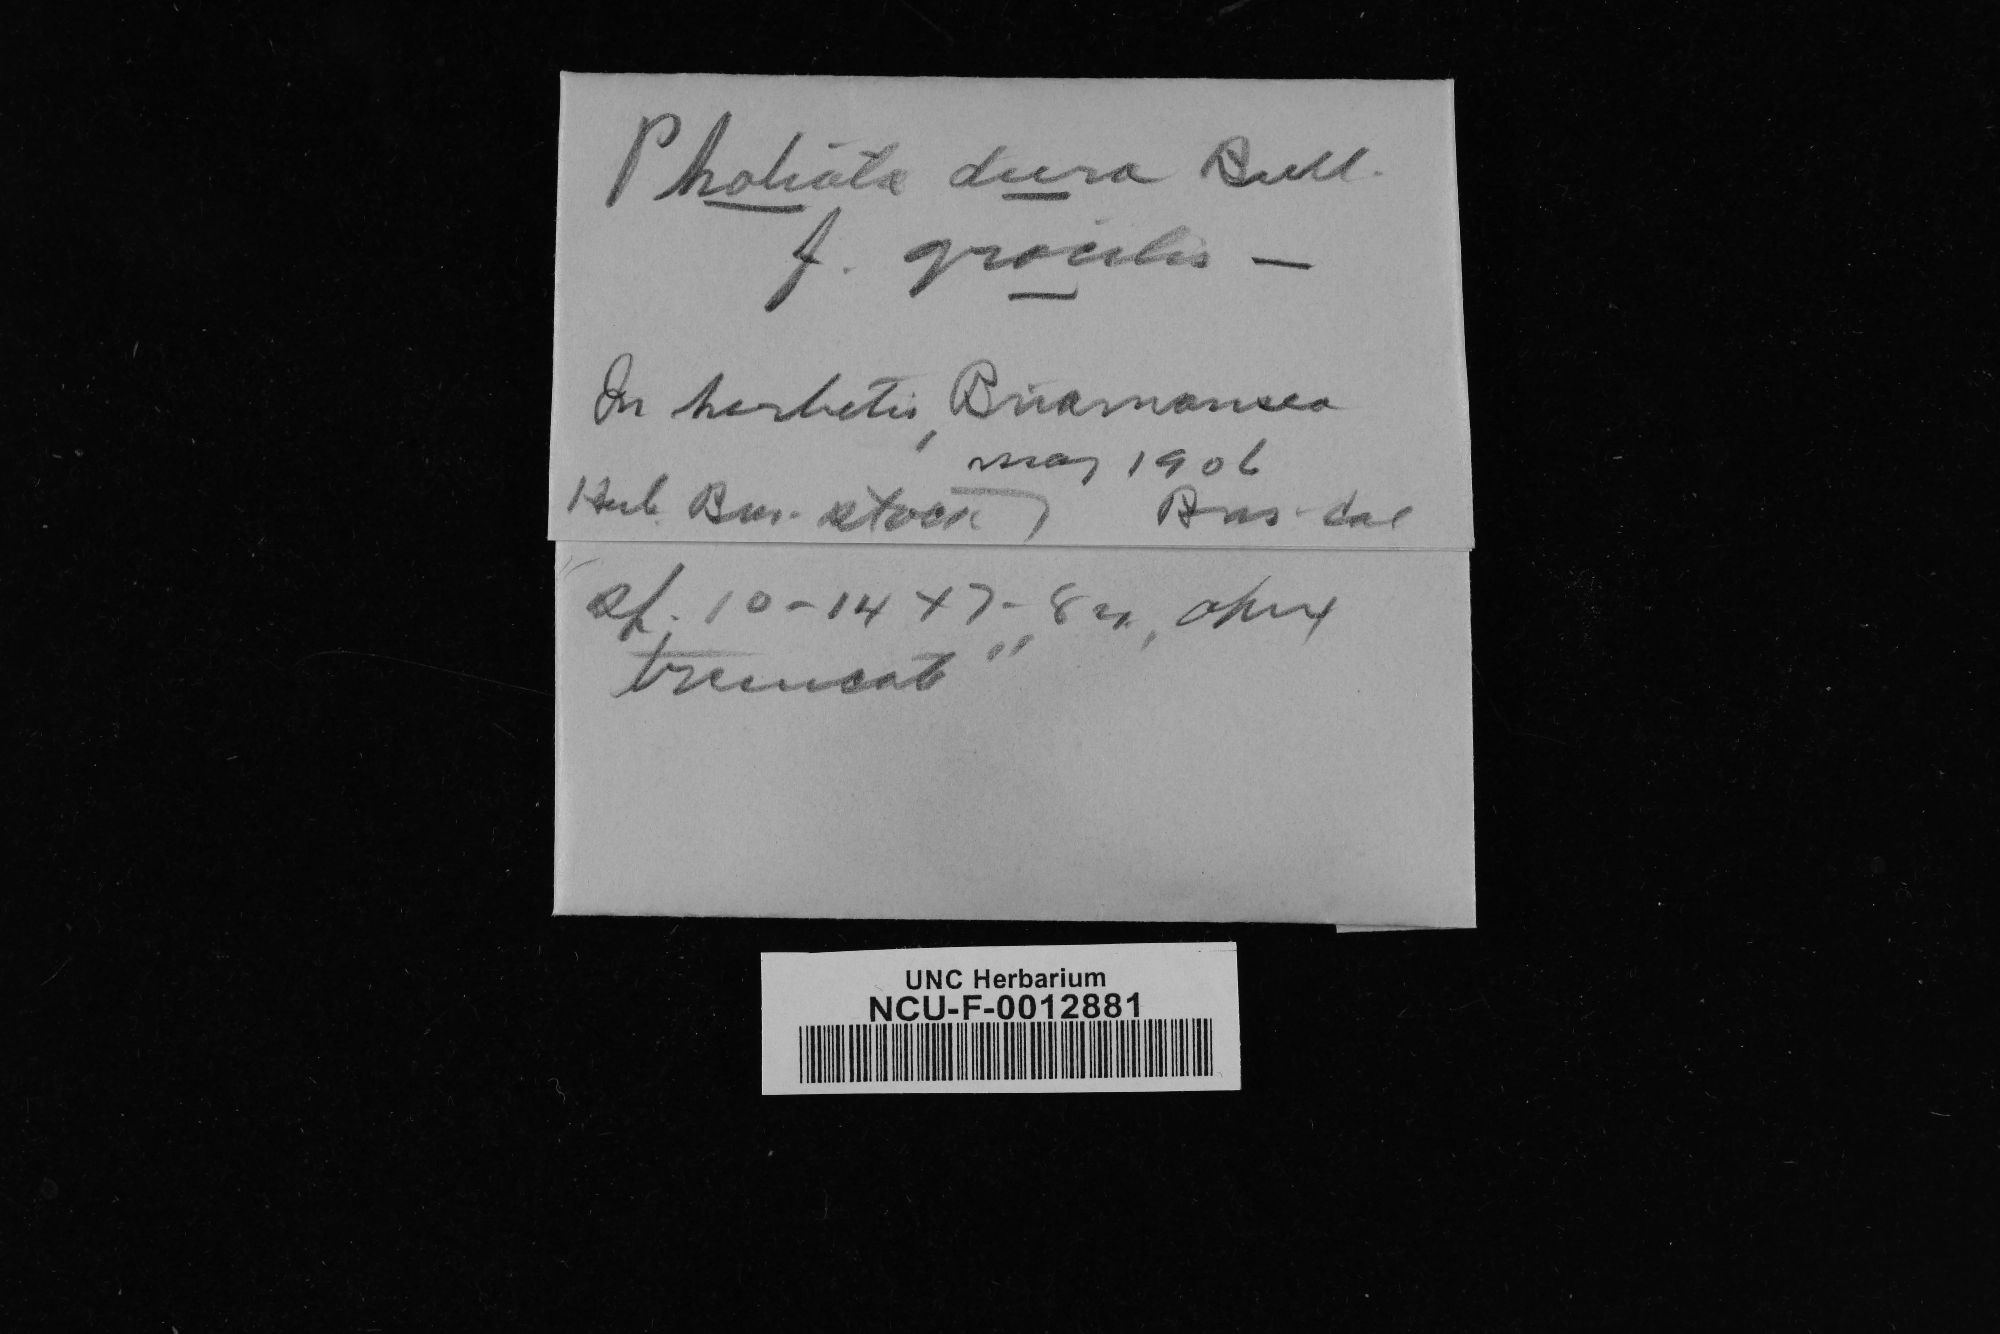 Pholiota dura Bull.
f. gracilis —
In herbetis, Briamansco
May 1906
Herb. Bres. Stock Bres. det
sp. 10-14 x 7-8 u., apex
truncate"
UNC Herbarium
NCU-F-0012881